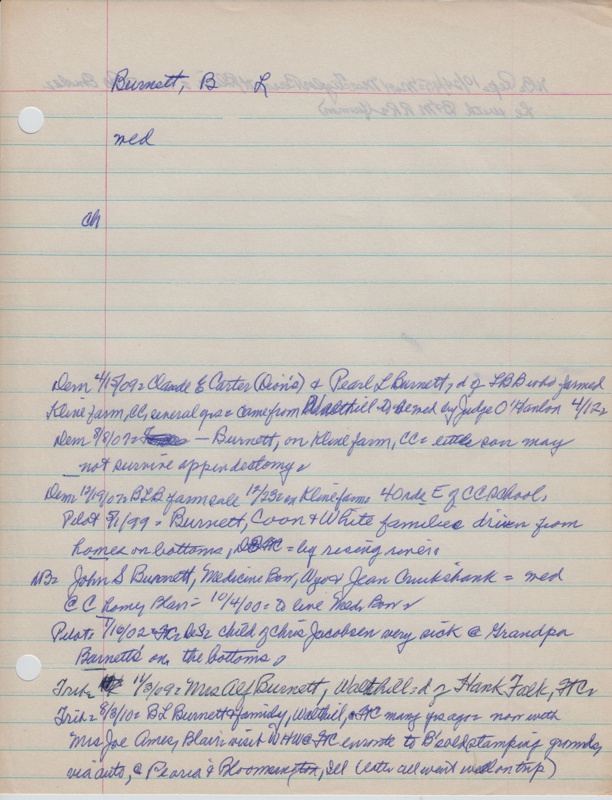 Burnett, B L
med
ch
Dem 4/15/09= Claude E Carter (Dion's) & Pearl L Burnett, d of LBB who farmed
Kline farm, CC, several yrs= came from Walthill to be med by Judge O'Hanlon 4/12=
Dem 8/8/07= — Burnett, on Kline farm, CC= little son may
not survive appendectomy=
Dem 12/19/07= BLB farm sale 12/23= on Kline farm 40 rds E of CC School.
Pilot 5/1/99= Burnett, Coon & White families driven from
homes on bottoms, = by rising river.
NB= John S Burnett, Medicine Bow, Wyo & Jean Cruikshank = med
@ C C home, Blair= 10/4/00= to live Med Bow=
Pilot 1/16/02 child of Chris Jacobsen very sick @ Grandpa
Barnett's on the bottoms.
Trib= 11/3/09= Mrs Alf Burnett, Walthill= d of Hank Falk, FtC=
Trib= 8/3/10= B L Burnett & family, Walthill, FtC many yrs ago= now with
Mrs Joe Amey, Blair= visit FtC enroute to B's old stamping grounds,
via auto, @ Peoria & Bloomington, Ill (later all went well on trip)